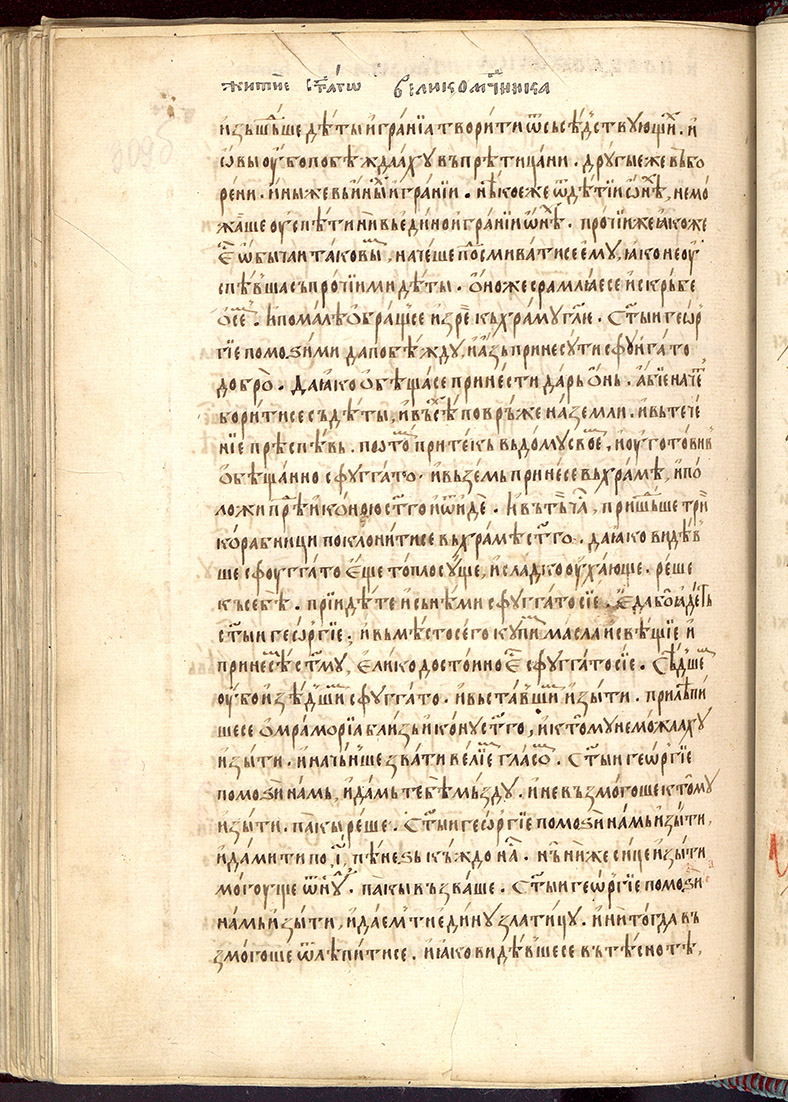 житїе ст҃аго великомч҃ника
изьш҃ьше дѣты и гранїа творити ѿ сьсѣдствующїиⷯ. и
ѡвы оубо побѣждааху въ прѣтицани. другые же въ бо
рени. и ны же вь инѣⷯ игранїи. нѣкое же ѿ дѣтїи ѡнѣⷯ, немо
жаше оуспѣти ни вь единой игранїи ѡнѣⷯ. прочїи же ꙗко же
єⷭ҇ ѡбычаи таковыⷨ, начеше посмиватисе ему, ꙗко не оу
спѣвша съ прочїими дѣты. ѻн же срамлꙗесе и скрьбе
ѻ се. и помалѣ ѻбращьсе и зрѣ кь храму гл҃и. ст҃ыи геѡр
гїе помоѕи ми да побѣжду, и азь принесу ти сфуггато
добро. да ꙗко ѻбѣщасе принести дарь ѻнь. абїе начеⷮ
боритисе съ дѣты, и въсѣⷯ поврьже на земли. и вь тече
нїе прѣспѣвь. поэтоⷨ притекь вь дому своеⷨ, и оуготовив
ѻбѣщанно сфуггато. и вьземь принесе вь храмѣ, и по
ложи прⷣѣ иконою ст҃го и ѿиде. и вь тьⷤ чаⷭ, пришⷣьше три
корабници поклонитисе вь храмѣ ст҃го. да ꙗко видѣв
ше сфуггато єще топло суще, и сладко оухающе. реше
кь себѣ. прїидѣте и сьнѣми сфуггато сїе. єда бо ꙗдеть
ст҃ыи геѡргїе; и вьмѣсто сего купиⷨ масла и свѣщїе и
принесеⷨ ст҃му, єлико достоино єⷭ҇ сфуггато сїе. сѣдшеⷨ
оубо изѣдшиⷨ сфуггато. и выставшиⷨ изыти. прилѣпи
шесе ѻ мраморїа близь иконы ст҃го, и к тому неможааху
изыти. и начьньше звати велїеⷨ гласоⷨ. ст҃ыи геѡргїе
помоѕи намь, и дамь тебѣ мьзду. и не възмогоше к тому
изыти. пакы реше. ст҃ыи геѡргїе помоѕи намь изыти,
и дами ти по ı҃, пѣнеѕь кьждо наⷭ. нь ни же сице изыти
могоуще ѿнуⷣ. пакы възваше. ст҃ыи геѡргїе помоѕи
намь изыти, и даемⷨ ти едину златицу. и ни тогда въ
змогоше ѿлѣпитисе. и ꙗко видѣвшесе въ тѣснотѣ,